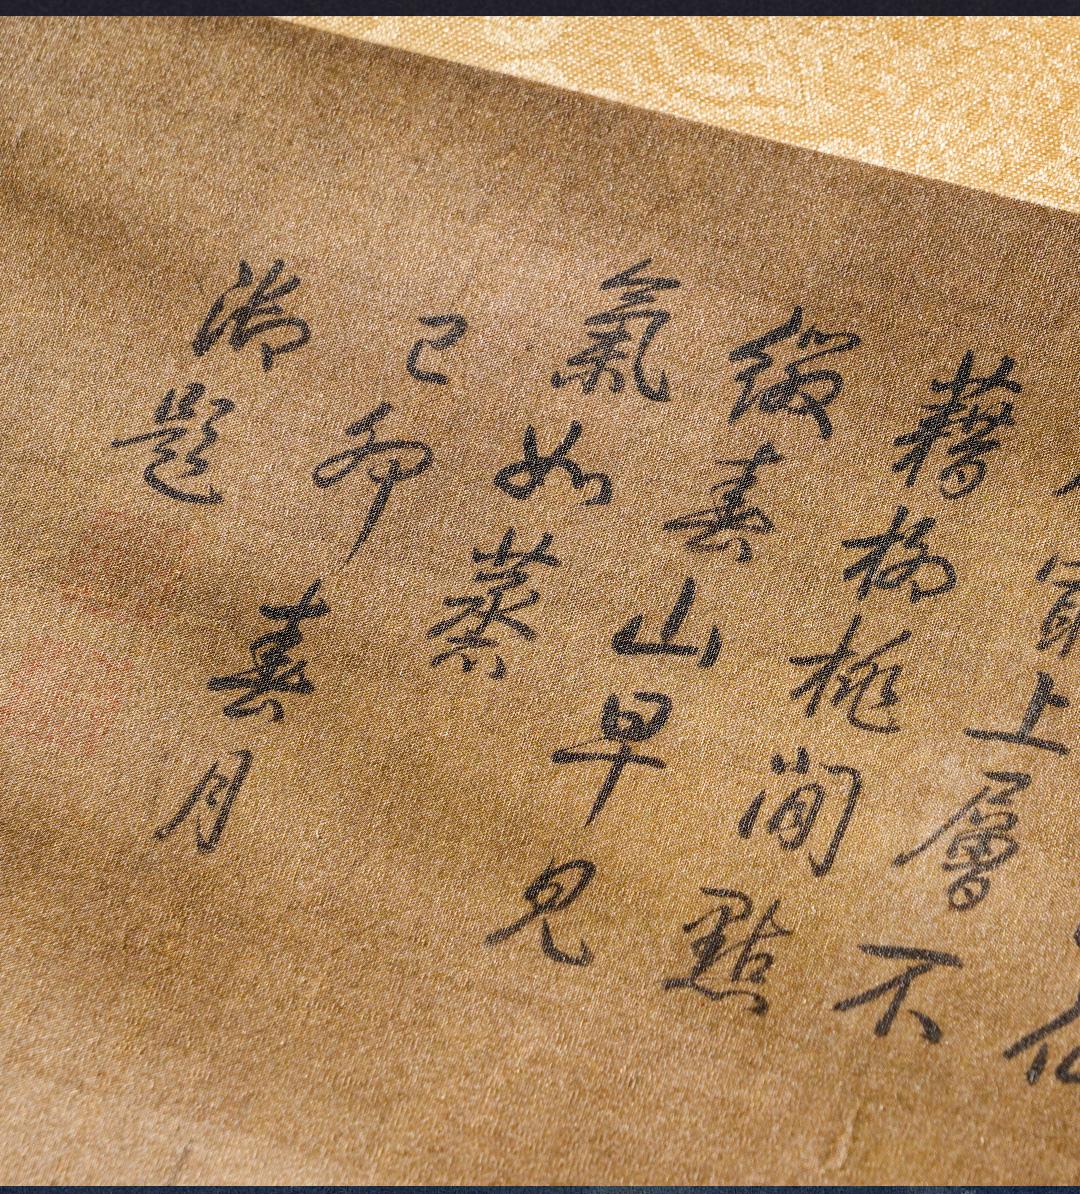 上層不
藉柳桃閒點
綴春山早見
氣如蒸
己卯春月
御題